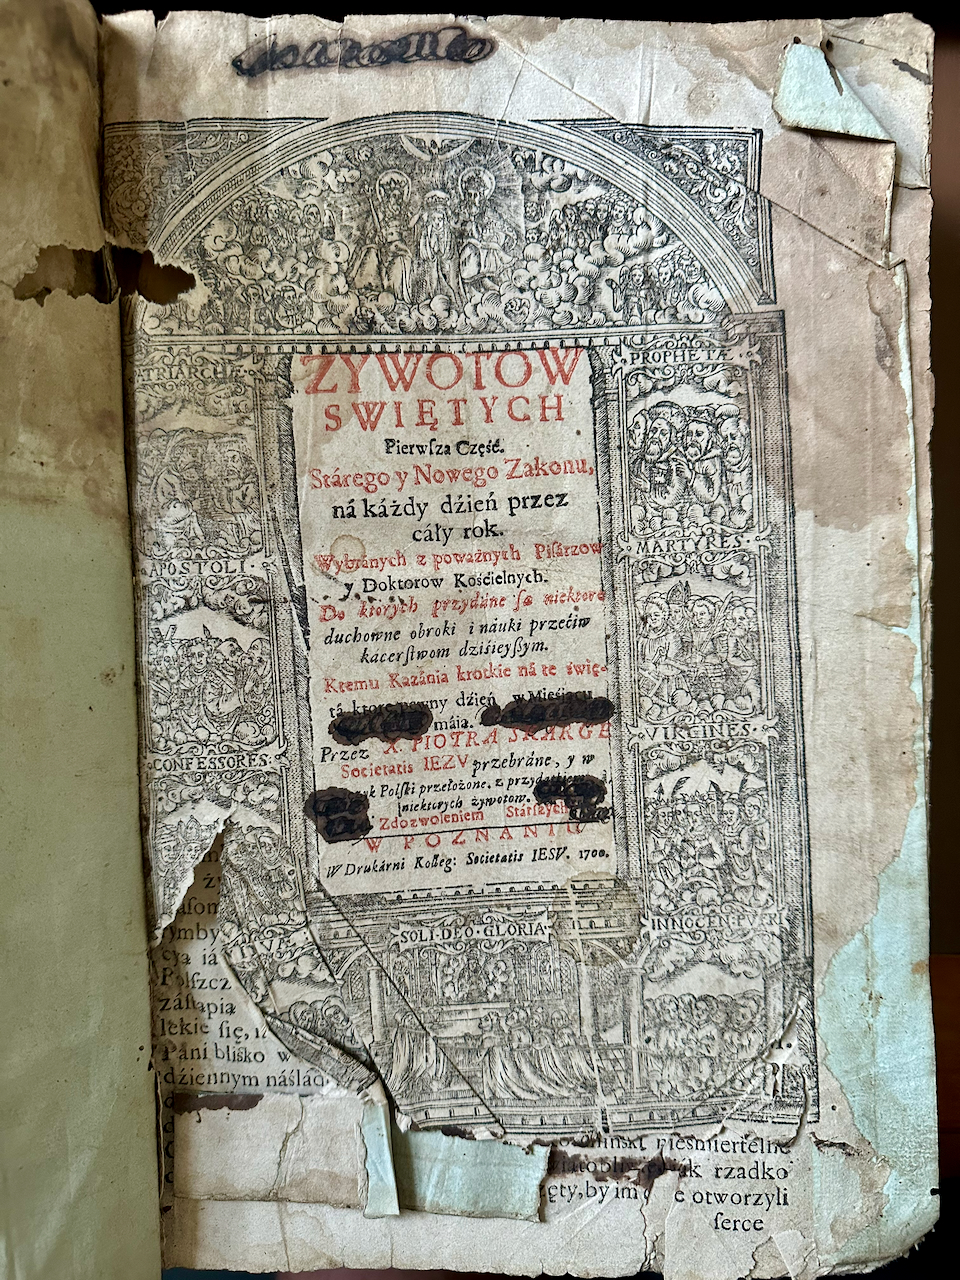 PROPHETÆ
TRIARCHÆ
ZYWOTOW
SWIĘTYCH
Pierwſza Część.
Stárego y Nowego Zakonu,
ná káżdy dźień przez
cáły rok.
Wybránych z poważnych Piſárzow
y Doktorow Kośćielnych.
Do ktorych przydáne ſą niektore
duchowne obroki i náuki przećiw
kacerſtwom dźiśieyßym.
Ktemu Kazánia krotkie ná te świę-
tá ktore pewny dźień w Mieśiącu
máią.
Przez X. PIOTRA SKARGE
Societatis IEZV przebráne, y w
yk Polſki przełożone, z przydatkiem
niektorych żywotow.
Zdozwoleniem Stárſzych
W POZNANIU
W Drukárni Kolleg: Societatis IESV. 1700.
MARTYRES
APOSTOLI
VIRGINES
CONFESSORES
INNOCEN PVERI
SOLI DEO GLORIA
ży
ymby
Polſzcz
záſtąpia
lekie ſię,
Páni bliſko w
dźiennym náślád
nieśmiertelne
ák rzadko
gty, by im e otworzyli
ſerce